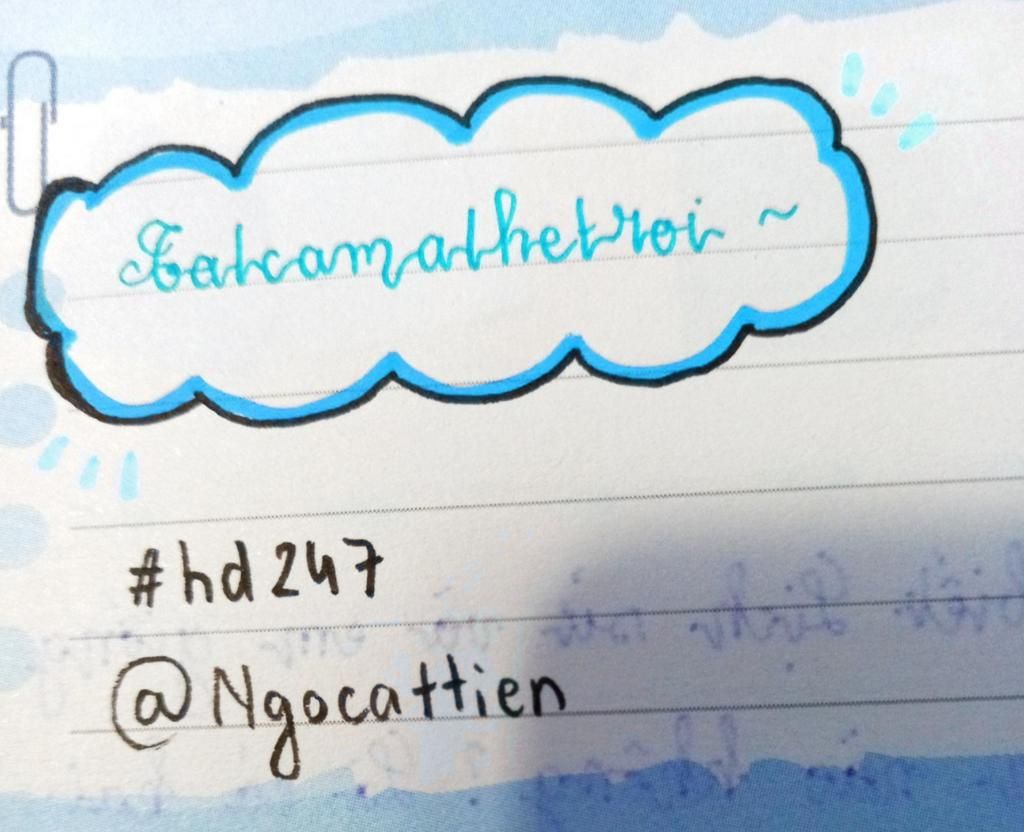 Tatcamathetroi ~
#hd247
@Ngocattien